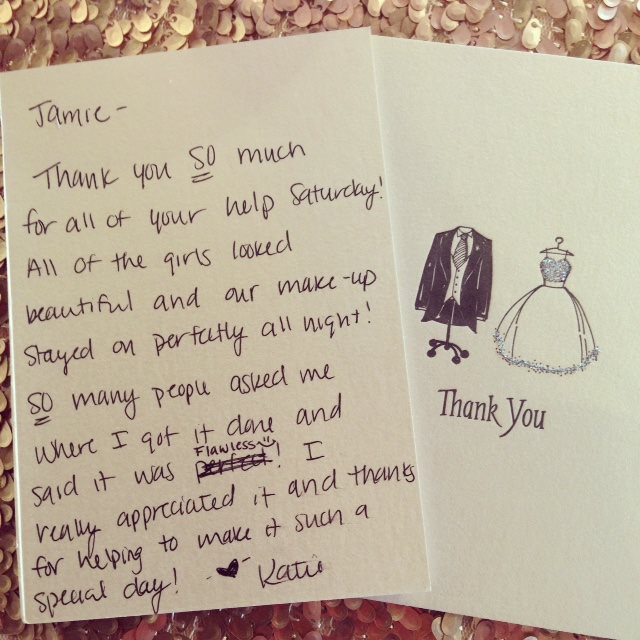 Jamie -
Thank you SO much
for all of your help Saturday!
All of the girls looked
beautiful and our make-up
stayed on perfectly all night!
SO many people asked me
where I got it done and
Flawless
said it was perfect! I
really appreciated it and thanks
for helping to make it such a
special day! - ♥ Katie
Thank You